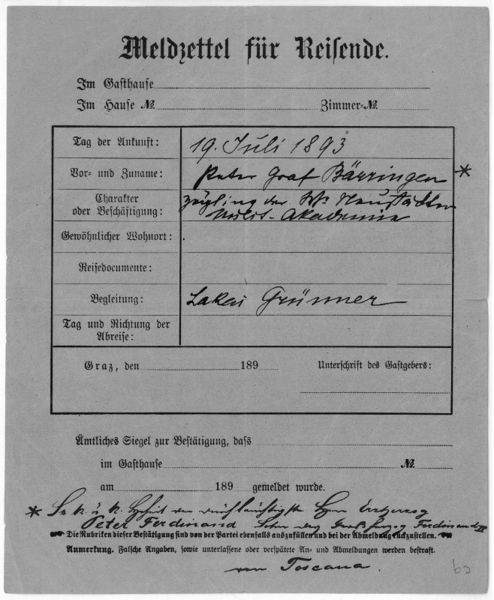 Meldzettel für Reisende.
Im Gasthause
Im Hause № Zimmer-№
Tag der Ankunft: 19. Juli 1893
Vor- und Zuname: Peter Graf Bärringen *
Charakter Zögling der k. k. Neustädter
oder Beschäftigung: Milit.-Akademie
Gewöhnlicher Wohnort:
Reisedocumente:
Begleitung: Lakai Grünner
Tag und Richtung der
Abreise:
Graz, den 189 Unterschrift des Gastgebers:
Ämtliches Siegel zur Bestätigung, dass
im Gasthause №
am 189 gemeldet wurde.
* Se k. u. k. Hoheit der durchlauchtigste Herr Erzherzog
Peter Ferdinand Sohn des Großherzog Ferdinand IV
Die Rubriken dieser Bestätigung sind von der Partei ebenfalls auszufüllen und bei der Abmeldung rückzustellen.
Anmerkung. Falsche Angaben, sowie unterlassene oder verspätete An- und Abmeldungen werden bestraft.
von Toscana.